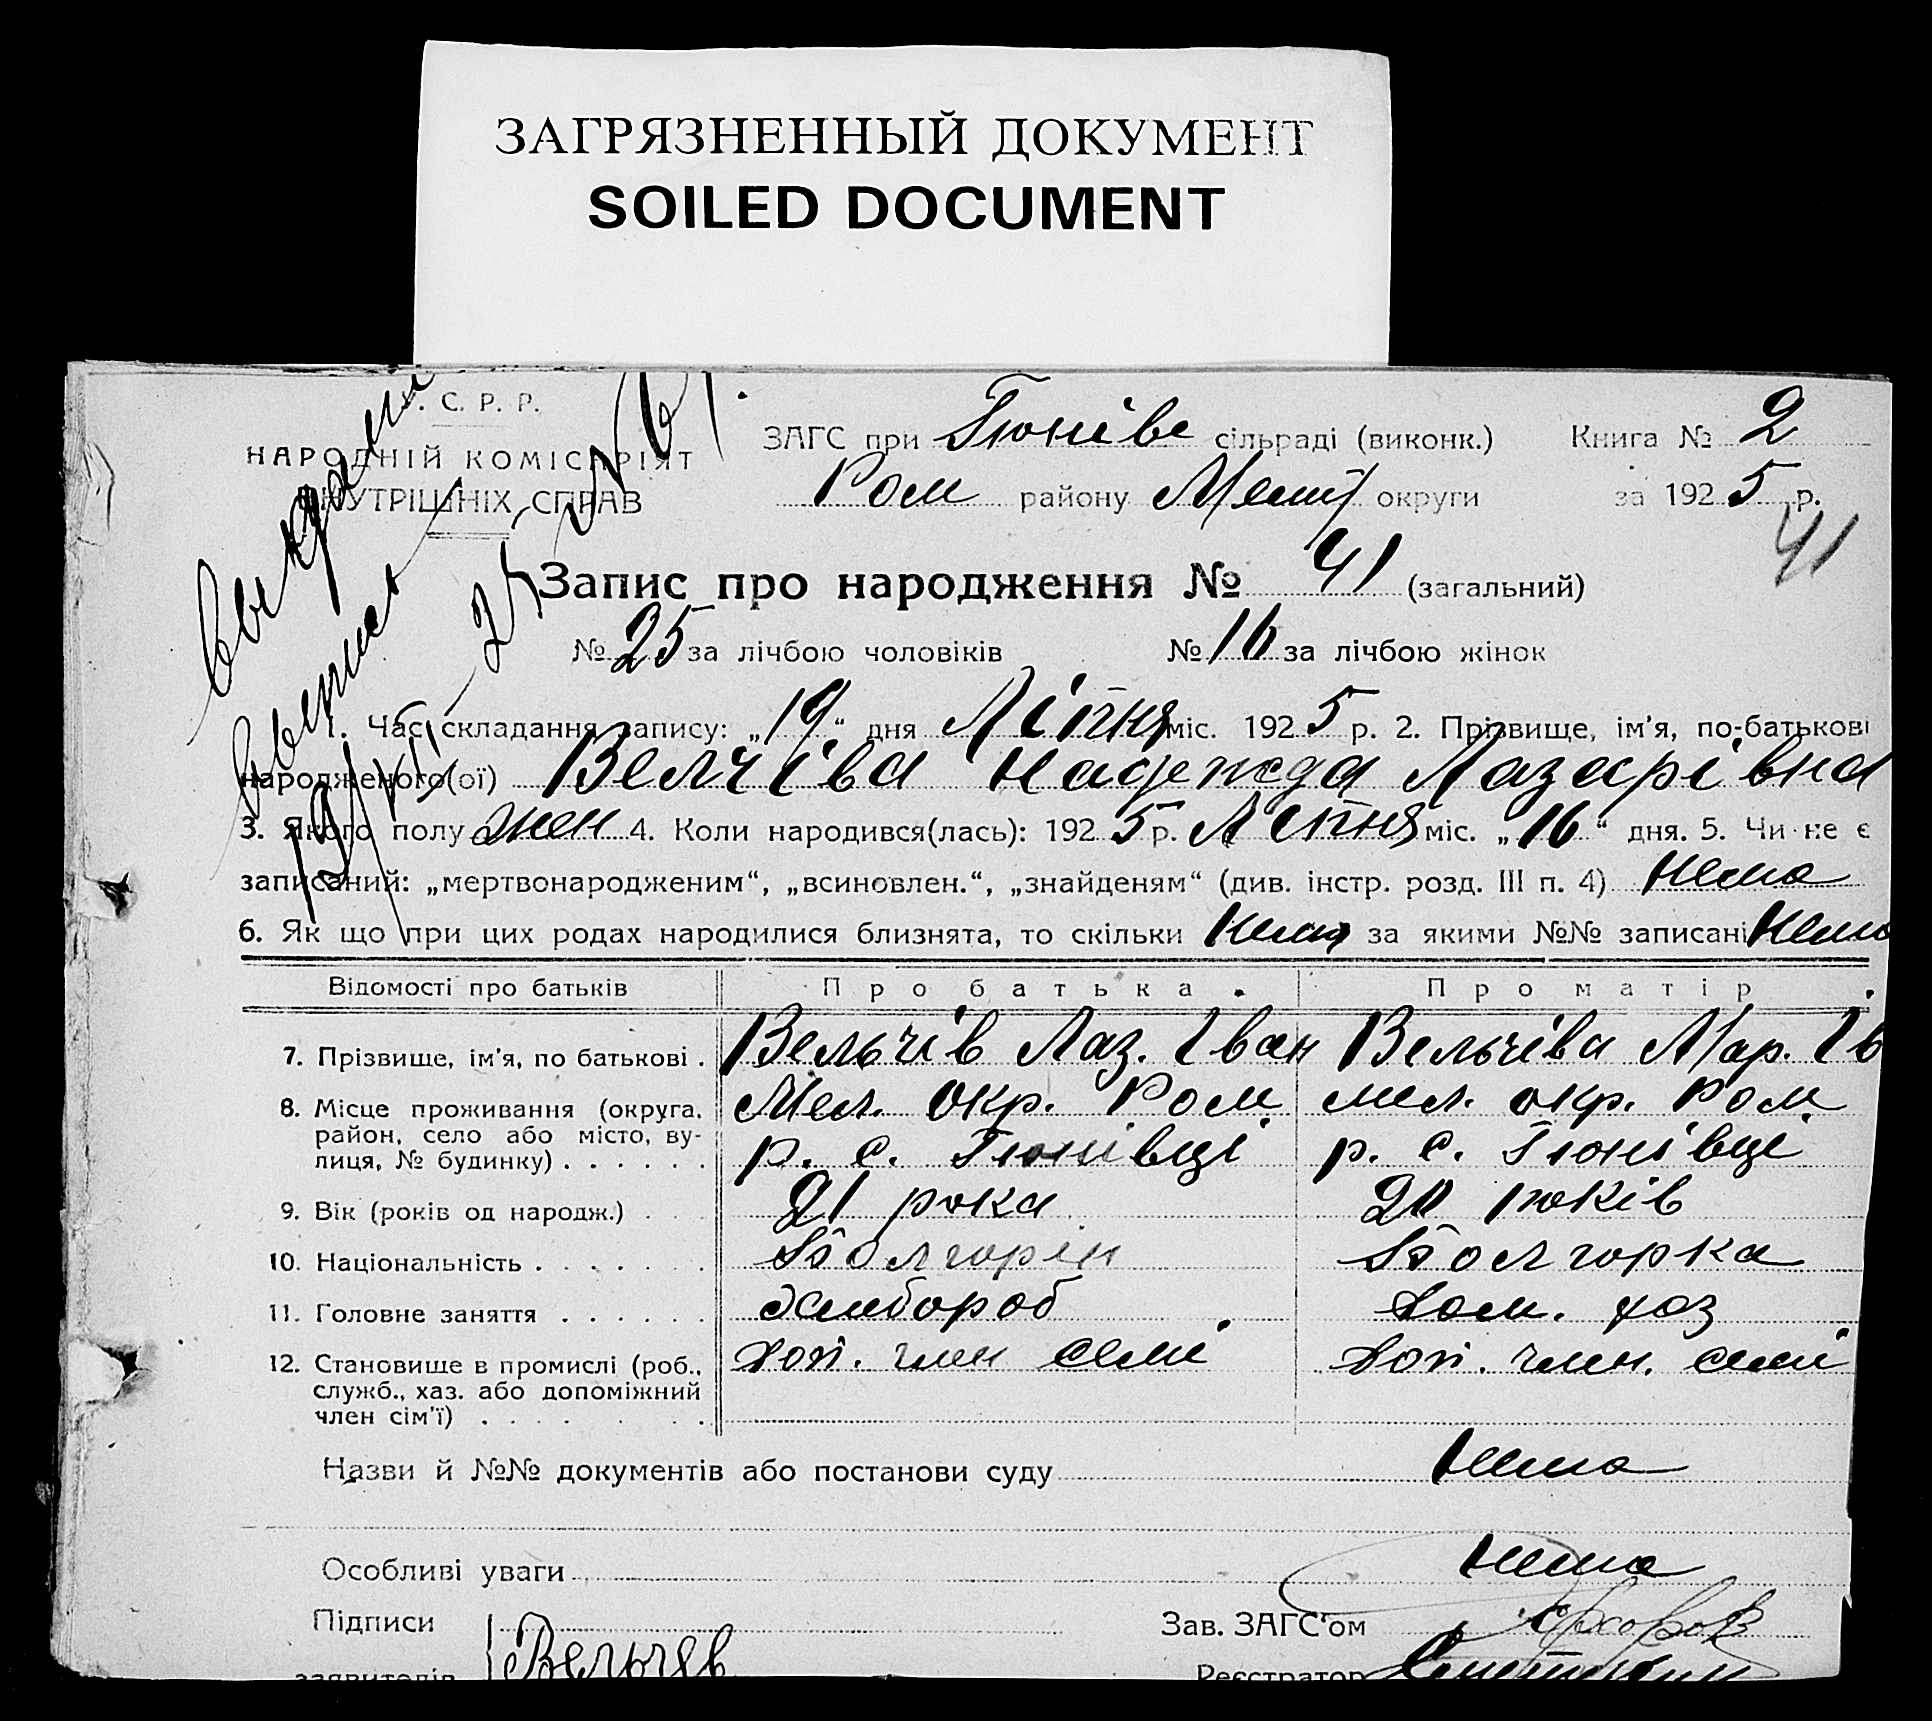 ЗАГРЯЗНЕННЫЙ ДОКУМЕНТ
SOILED DOCUMENT
У. С. Р. Р.
НАРОДНІЙ КОМІСАРІЯТ
ВНУТРІШНІХ СПРАВ
ЗАГС при Гюнівс сільраді (виконк.)
Ром району Меліт округи
Книга № 2
за 1925 р.
41
Запис про народження № 41 (загальний)
№ 25 за лічбою чоловіків № 16 за лічбою жінок
1. Час складання запису: „19“ дня Ліпня міс. 1925 р. 2. Прізвище, ім'я, по-батькові
народженого(ої) Велчіва Надежда Лазарівна
3. Якого полу жен 4. Коли народився(лась): 1925 р. Ліпня міс. „16“ дня. 5. Чи не є
записаний: „мертвонародженим“, „всиновлен.“, „знайденям“ (див. інстр. розд. III п. 4) нема
6. Як що при цих родах народилися близнята, то скільки нема за якими №№ записані нема
Відомості про батьків Про батька. Про матір
7. Прізвище, ім'я, по батькові . Вельчів Лаз. Іван Вельчіва Мар. Ів
8. Місце проживання (округа, Мел. окр. Ром. мел. окр. Ром.
район, село або місто, ву- р. с. Гюнівці р. с. Гюнівці
лиця, № будинку) . . . . . .
9. Вік (років од народж.) . . 21 рока 20 років
10. Національність . . . . . . . Болгорін Болгорка
11. Головне заняття . . . . . . Хлібороб дом. хоз
12. Становище в промислі (роб., доп. член семі доп. член. семі
служб., хаз. або допоміжний
член сім'ї) . . . . . . . .
Назви й №№ документів або постанови суду нема
Особливі уваги нема
Підписи
заявителів Вельчев
Зав. ЗАГС'ом
Реєстратор
выдана
выпись